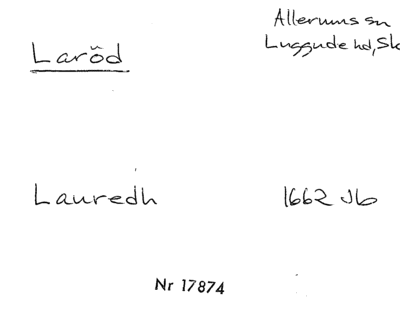 Laröd
Allerums sn
Luggude hd, Sk
Lauredh 1662 Jb
Nr 17874